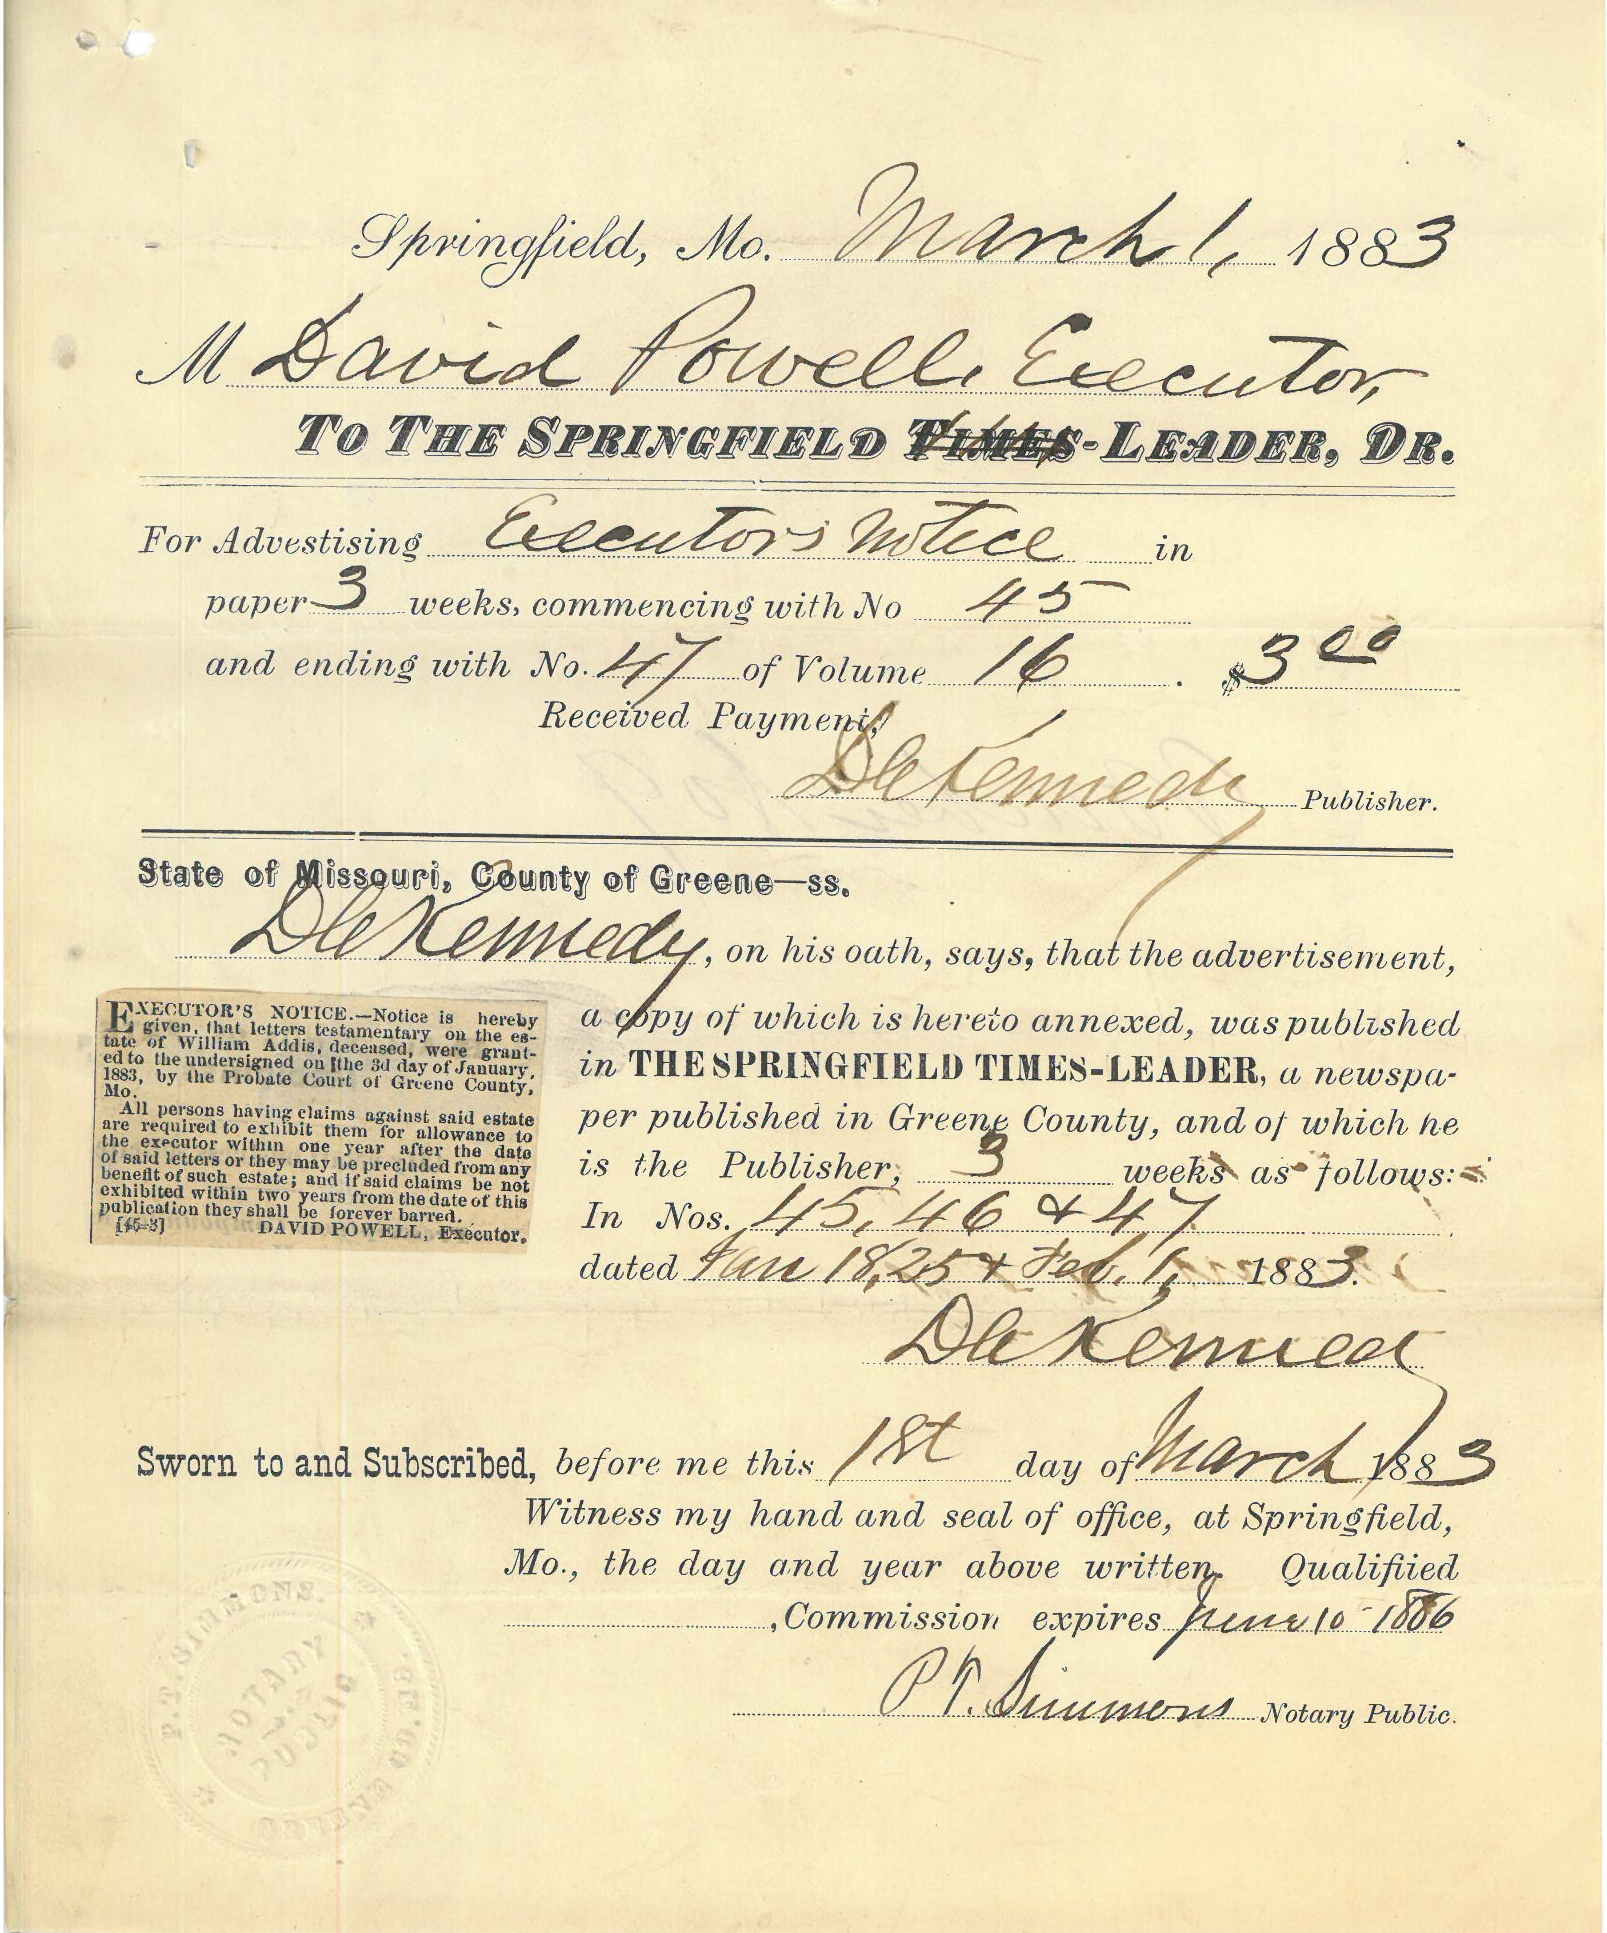 Springfield, Mo. March 1, 1883
M David Powell, Executor,
TO THE SPRINGFIELD TIMES-LEADER, DR.
For Advestising Executors Notice in
paper 3 weeks, commencing with No 45
and ending with No. 47 of Volume 16 . $3 00
Received Payment,
D C Kennedy Publisher.
State of Missouri, County of Greene—ss.
D C Kennedy, on his oath, says, that the advertisement,
a copy of which is hereto annexed, was published
in THE SPRINGFIELD TIMES-LEADER, a newspa-
per published in Greene County, and of which he
is the Publisher, 3 weeks as follows:
In Nos. 45, 46 & 47
dated Jan 18, 25 & Feb. 1, 1883.
D C Kennedy
EXECUTOR'S NOTICE.—Notice is hereby
given, that letters testamentary on the es-
tate of William Addis, deceased, were grant-
ed to the undersigned on the 3d day of January,
1883, by the Probate Court of Greene County,
Mo.
All persons having claims against said estate
are required to exhibit them for allowance to
the executor within one year after the date
of said letters or they may be precluded from any
benefit of such estate; and if said claims be not
exhibited within two years from the date of this
publication they shall be forever barred.
[45-3] DAVID POWELL, Executor.
Sworn to and Subscribed, before me this 1st day of March 1883
Witness my hand and seal of office, at Springfield,
Mo., the day and year above written. Qualifiied
, Commission expires June 10 1886
P T. Simmons Notary Public.
P.T. SIMMONS.
NOTARY
GREENE CO. MO.